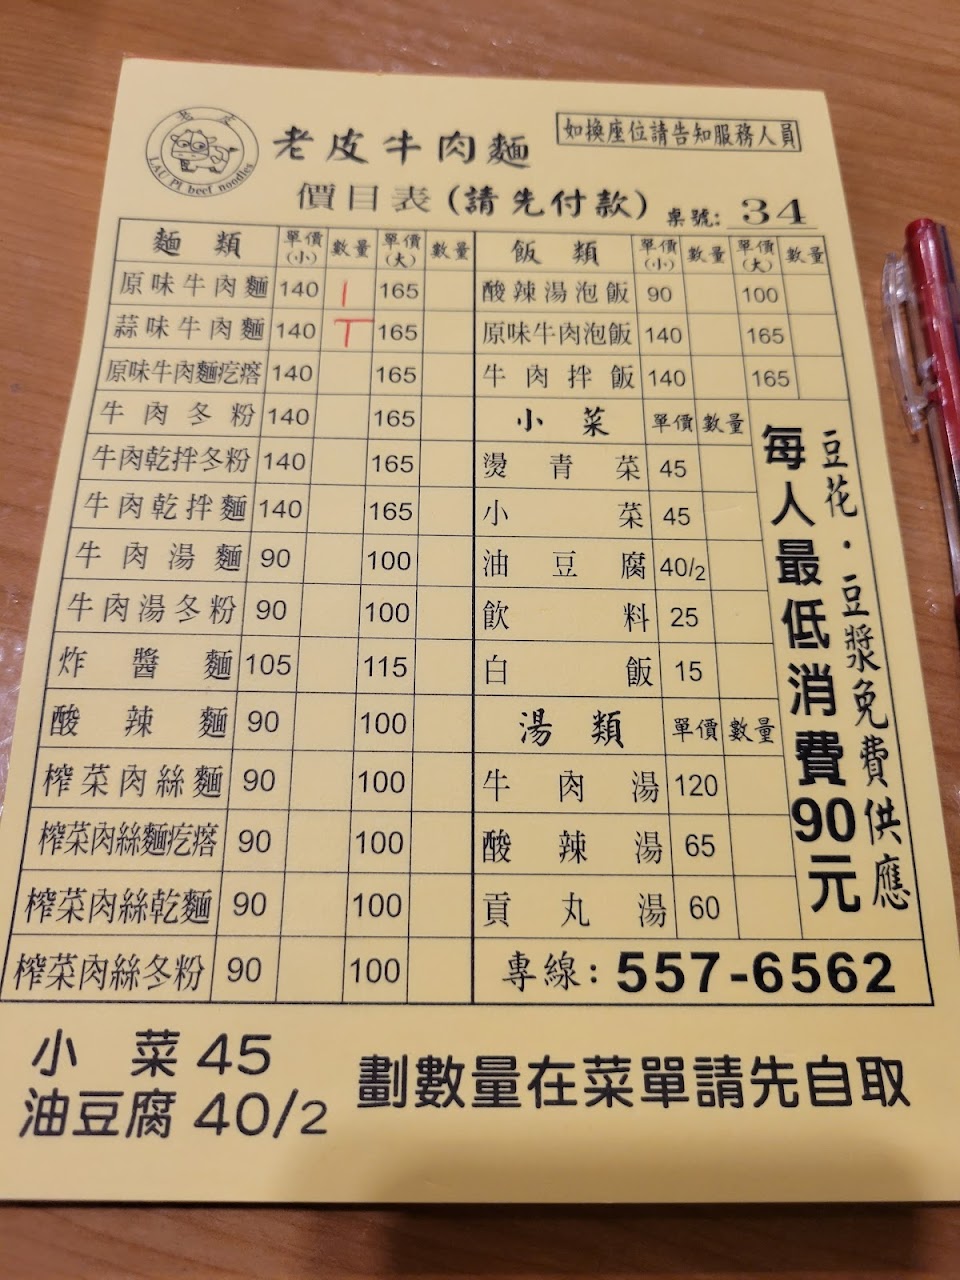 老皮
LAU PI beef noodles
老皮牛肉麵
如換座位請告知服務人員
價目表(請先付款) 桌號: 34
麵類 單價(小) 數量 單價(大) 數量
原味牛肉麵 140 1 165
蒜味牛肉麵 140 T 165
原味牛肉麵疙瘩 140 165
牛肉冬粉 140 165
牛肉乾拌冬粉 140 165
牛肉乾拌麵 140 165
牛肉湯麵 90 100
牛肉湯冬粉 90 100
炸醬麵 105 115
酸辣麵 90 100
榨菜肉絲麵 90 100
榨菜肉絲麵疙瘩 90 100
榨菜肉絲乾麵 90 100
榨菜肉絲冬粉 90 100
飯類 單價(小) 數量 單價(大) 數量
酸辣湯泡飯 90 100
原味牛肉泡飯 140 165
牛肉拌飯 140 165
小菜 單價 數量
燙青菜 45
小菜 45
油豆腐 40/2
飲料 25
白飯 15
湯類 單價 數量
牛肉湯 120
酸辣湯 65
貢丸湯 60
豆花·豆漿免費供應
每人最低消費90元
專線:557-6562
小菜 45
油豆腐 40/2
劃數量在菜單請先自取